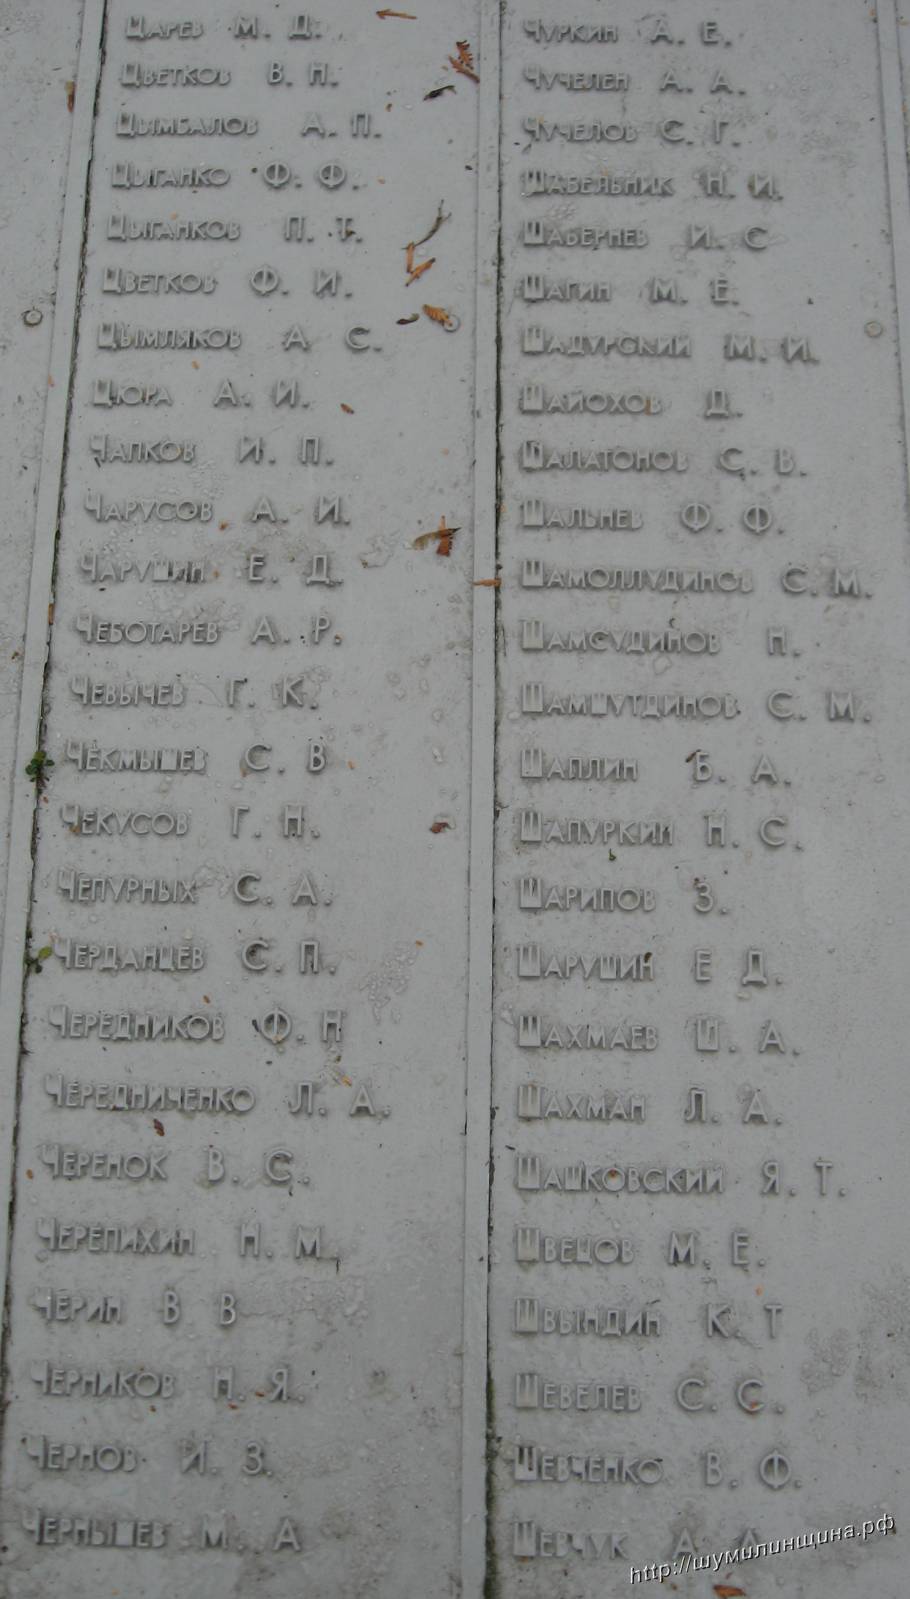 Царев М. Д.
Цветков В. Н.
Цымбалов А. П.
Цыганко Ф. Ф.
Цыганков П. Т.
Цветков Ф. И.
Цымляков А С.
Цюра А. И.
Чапков И. П.
Чарусов А. И.
Чарушин Е. Д.
Чеботарев А. Р.
Чевычев Г. К.
Чекмышев С. В
Чекусов Г. Н.
Чепурных С. А.
Черданцев С. П.
Чередников Ф. Н
Чередниченко Л. А.
Черенок В. С.
Черепихин Н. М.
Черин В В
Черников Н. Я.
Чернов И. З.
Чернышев М. А
Чуркин А. Е.
Чучелен А. А.
Чучелов С. Г.
Шавельник Н. И.
Шабернев И. С
Шагин М. Е.
Шадурский М. И.
Шайохов Д.
Шалатонов С. В.
Шальнев Ф. Ф.
Шамоллудинов С. М.
Шамсудинов Н.
Шамшутдинов С. М.
Шаплин Б. А.
Шапуркин Н. С.
Шарипов З.
Шарушин Е Д.
Шахмаев Ш. А.
Шахман Л. А.
Шашковский Я. Т.
Швецов М. Е.
Швындин К. Т
Шевелев С. С.
Шевченко В. Ф.
Шевчук А.
http://шумилинщина.рф